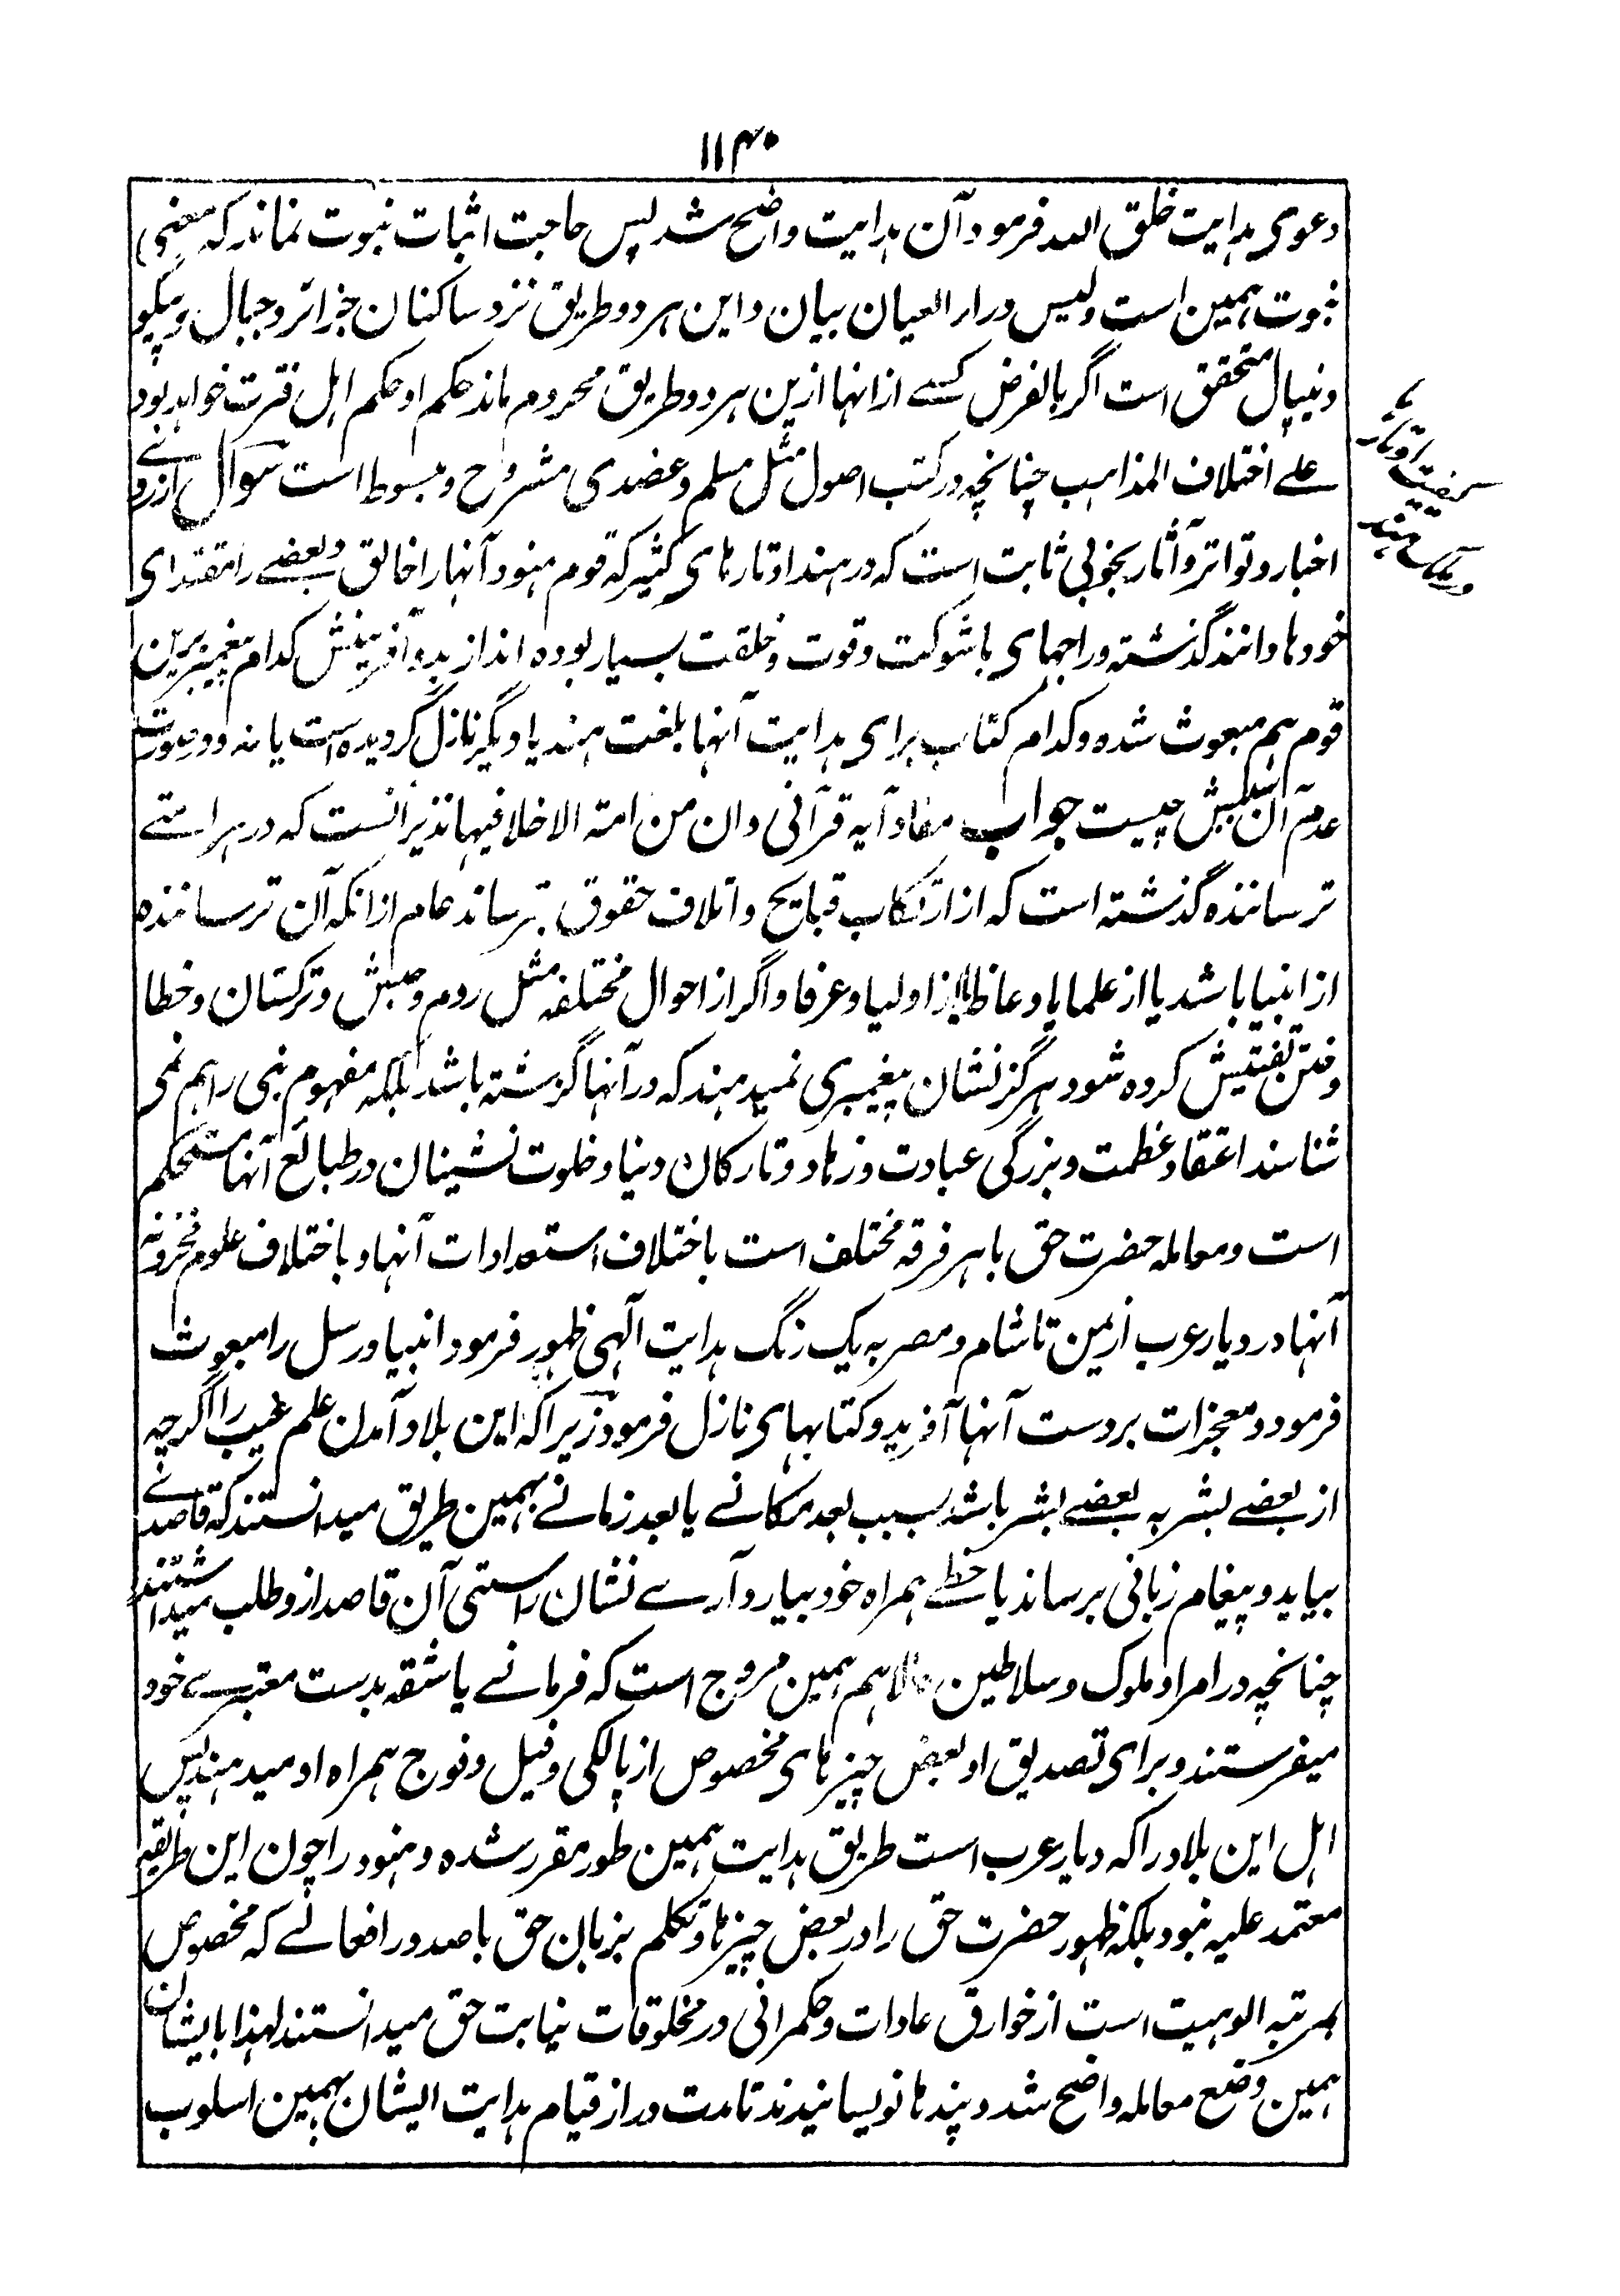 ۱۱۴۰
دعوی ہدایت خلق اللہ فرمود آن ہدایت واضح شد پس حاجت اثبات نبوت نماند کہ معنی
نبوت ہمین است ولیس وراء العیان بیان و این ہر دو طریق نزد ساکنان جزائر و جبال و پیگو
و نیپال متحقق است اگر بالفرض کسے ازانہا ازین ہر دو طریق محروم ماند حکم او حکم اہل فترت خواہد بود
علے اختلاف المذاہب چنانچہ در کتب اصول مثل مسلم و عضدی مشروح و مبسوط است سوال از روئے
اخبار و تواتر و آثار بخوبی ثابت است کہ در ہند اوتارہای کثیر کہ قوم ہنود آنہا را خالق و بعضے را مقتدای
خودہا دانند گذشتہ و راجہای باشوکت و قوت و خلقت بسیار بودہ اند از بدو آفرینش کدام پیغمبر برین
قوم ہم مبعوث شدہ و کدام کتاب برای ہدایت آنہا بلغت ہند یا دیگر نازل گردیدہ است یا نہ و در صورت
عدم آن سببش چیست جواب مفاد آیہ قرآنی وان من امۃ الا خلا فیہا نذیر آنست کہ در ہر امتے
ترسانندہ گذشتہ است کہ از ارتکاب قبایح و اتلاف حقوق بترساند عام ازانکہ آن ترسانندہ
از انبیا باشد یا از علما یا وعاظ یا از اولیا و عرفا و اگر از احوال مختلفہ مثل روم و حبش و ترکستان و خطا
و ختن تفتیش کردہ شود ہرگز نشان پیغمبری نمیدہند کہ در آنہا گزشتہ باشد بلکہ مفہوم نبی را ہم نمی
شناسند اعتقاد عظمت و بزرگی عبادت و زہاد و تارکان دنیا و خلوت نشینان در طبائع آنہا مستحکم
است و معاملہ حضرت حق با ہر فرقہ مختلف است باختلاف استعدادات آنہا و باختلاف علوم مخزونہ
آنہا در دیار عرب از یمن تا شام و مصر بہ یک رنگ ہدایت آلہی ظہور فرمود انبیا و رسل را مبعوث
فرمود و معجزات بر دست آنہا آفرید و کتابہای نازل فرمود زیراکہ این بلاد آمدن علم غیب را اگرچہ
از بعضے بشر بہ بعضے بشر باشد بسبب بعد مکانے یا بعد زمانے بہمین طریق میدانستند کہ قاصدے
بیاید و پیغام زبانی برساند یا خطے ہمراہ خود بیارد آرے نشان راستی آن قاصد ازو طلب میداشتند
چنانچہ در امرا و ملوک و سلاطین حالا ہم ہمین مروج است کہ فرمانے یا شقہ بدست معتبرے خود
میفرستند و برای تصدیق او بعض چیزہای مخصوص از پالکی و فیل و فوج ہمراہ او میدہند پس
اہل این بلاد را کہ دیار عرب است طریق ہدایت ہمین طور مقرر شدہ و ہنود را چون این طریقہ
معتمد علیہ نبود بلکہ ظہور حضرت حق را در بعض چیزہا و تکلم بزبان حق با صدور افعالے کہ مخصوص
بمرتبہ الوہیت است از خوارق عادات و حکمرانی در مخلوقات نیابت حق میدانستند لہذا بایشان
ہمین وضع معاملہ واضح شد و پندہا نویسانیدند تا مدت دراز قیام ہدایت ایشان بہمین اسلوب
کیفیت اوتار
در ملک ہند